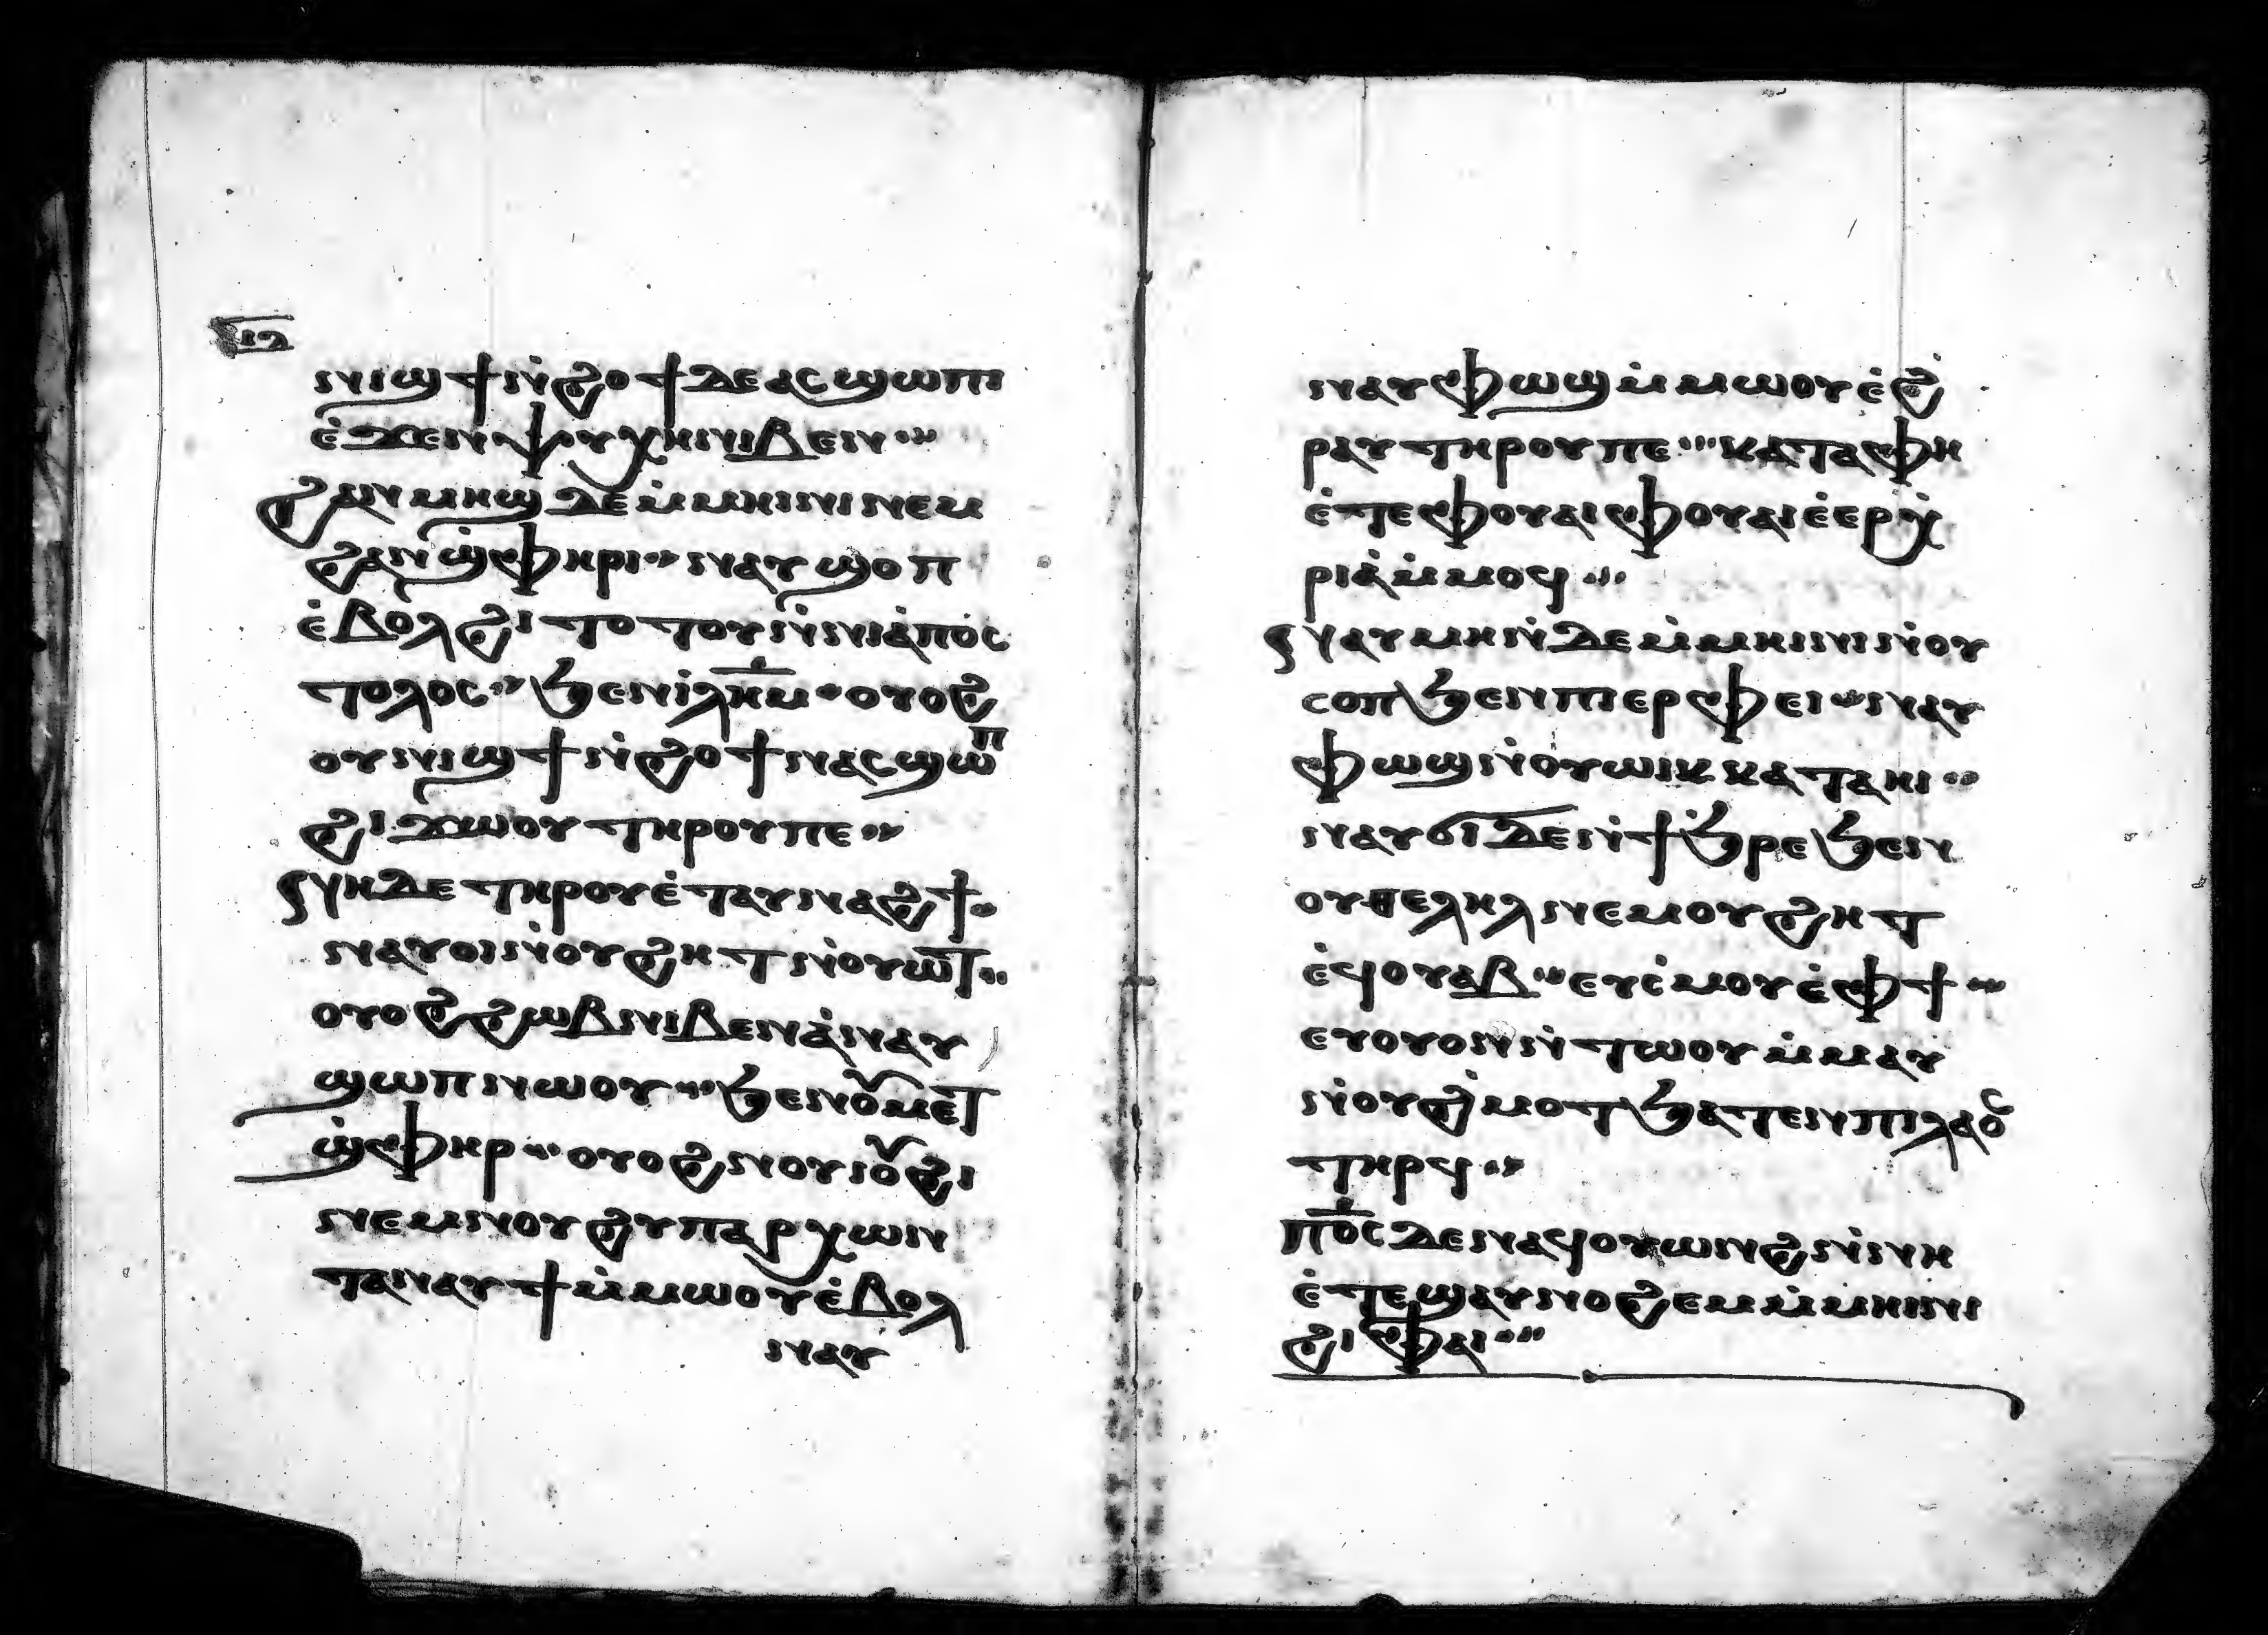 ⲛⲓϣϯⲛ̇ϩⲟϯⲇⲉⲁⲥϣⲱⲡⲓ
ⲉ̇ϫⲉⲛⲯⲩⲭⲏⲛⲓⲃⲉⲛ
ϩⲁⲛⲙⲏϣⲇⲉⲙ̇ⲙⲏⲓⲛⲓⲛⲉⲙ
ϩⲁⲛϣ̇ⲫⲏⲣⲓ ⲛⲁⲩϣⲟⲡ
ⲉ̇ⲃⲟⲗϩⲓⲧⲟⲧⲟⲩⲛ̇ⲛⲓⲁ̇ⲡⲟⲥ
ⲧⲟⲗⲟⲥ ϧⲉⲛⲓ̇ⲗⲏ̅ⲙ ⲟⲩⲟϩ
ⲟⲩⲛⲓϣϯⲛ̇ϩⲟϯⲛⲁⲥϣⲱⲡ
ϩⲓϫⲱⲟⲩⲧⲏⲣⲟⲩⲡⲉ
ⲛⲏⲇⲉⲧⲏⲣⲟⲩⲉ̇ⲧⲁⲩⲛⲁϩϯ
ⲛⲁⲩⲟⲓⲛ̇ⲟⲩϩⲏⲧⲛ̇ⲟⲩⲱⲧ
ⲟⲩⲟϩϩⲱⲃⲛⲓⲃⲉⲛⲁ̇ⲛⲁⲩ
ϣⲱⲡⲛⲱⲟⲩ ϧⲉⲛⲟⲩⲙⲉⲧ
ϣ̇ⲫⲏⲣ ⲟⲩⲟϩⲛⲟⲩⲓⲟⲩϩⲓ
ⲛⲉⲙⲛⲟⲩϩⲩⲡⲁⲣⲭⲱⲛ
ⲧⲁⲛⲁⲩϯⲙ̇ⲙⲱⲟⲩⲉ̇ⲃⲟⲗ
ⲛⲁⲩ
ⲛⲁⲩⲫⲱϣⲙ̇ⲙⲱⲟⲩⲉ̇ϩ̇
ⲣⲁⲩⲧⲏⲣⲟⲩⲡⲉ ⲕⲁⲧⲁⲫⲏ
ⲉ̇ⲧⲉⲫⲟⲩⲁⲓⲫⲟⲩⲁⲓⲉ̇ⲉⲣⲭ̇
ⲣⲓⲁ̇ⲙ̇ⲙⲟϥ
ⲛⲁⲩⲙⲏⲛ̇ⲇⲉⲙ̇ⲙⲏⲓⲛⲓⲛ̇ⲟⲩ
ⲥⲟⲡϧⲉⲛⲡⲓⲉⲣⲫⲉⲓ ⲛⲁⲩ
ⲫⲱϣⲛ̇ⲟⲩⲱⲓⲕⲕⲁⲧⲁⲏⲓ
ⲛⲁⲩϭⲓⲇⲉⲛ̇ϯϧ̇ⲣⲉϧⲉⲛ
ⲟⲩⲑⲉⲗⲏⲗⲛⲉⲙⲟⲩϩⲏⲧ
ⲉ̇ϥⲟⲩⲁⲃ ⲉⲩⲥ̇ⲙⲟⲩⲉ̇ⲫϯ
ⲉⲩⲟⲩⲟⲛⲛ̇ⲧⲱⲟⲩⲙ̇ⲙⲁⲩ
ⲛ̇ⲟⲩϩ̇ⲙⲟⲧϧⲁⲧⲉⲛⲡⲓⲗⲁⲟⲥ
ⲧⲏⲣϥ
ⲡⲟ̅ⲥⲇⲉⲛⲁϥⲟⲩⲱⲛϩⲛ̇ⲛⲏ
ⲉ̇ⲧⲉϣⲁⲩⲛⲟϩⲉⲙⲙ̇ⲙⲏⲓⲛⲓ
ϩⲓⲫⲁⲓ